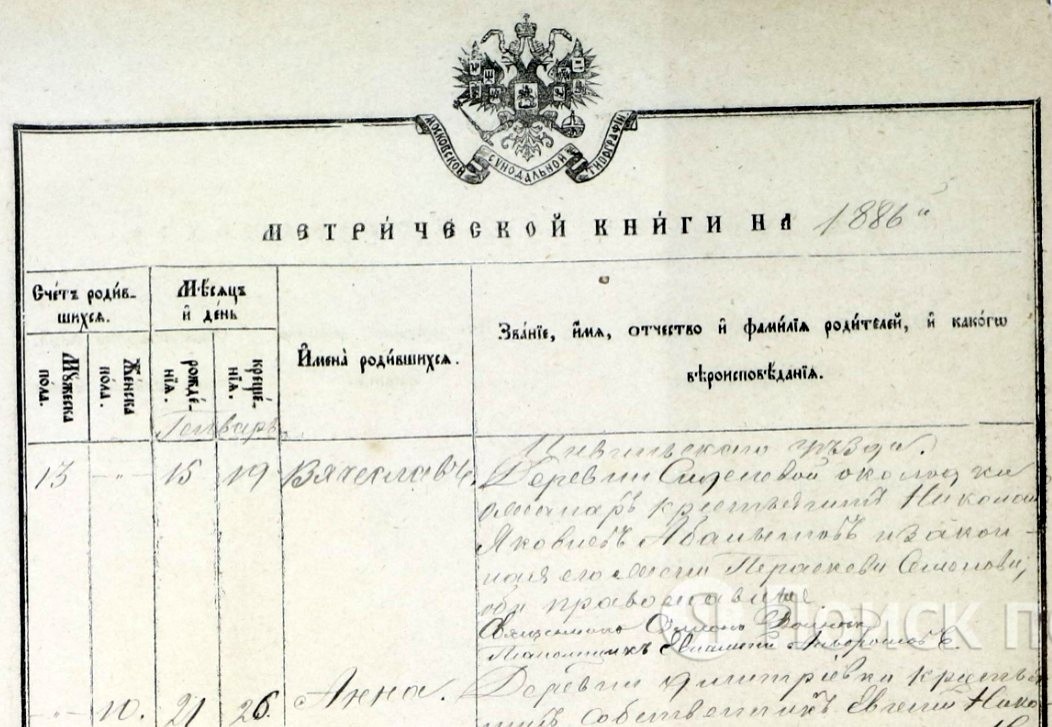 МОСКОВСКОЙ СѴНОДАЛЬНОЙ ТИПОГРАФІИ
МЕТРИ́ЧЕСКОЙ КНИ́ГИ НА 1886
Сче́тъ роди́в-
шихсѧ.
Мѣ́сѧцъ
и҆ де́нь
И҆мена̀ роди́вшихсѧ.
Зва́нїе, и҆́мѧ, ѻ҆́тчество и҆ фами́лїѧ роди́телей, и҆ како́гѡ
вѣроисповѣ́данїѧ.
Мꙋ́жеска
по́ла.
Же́нска
по́ла.
рожде́-
нїѧ.
креще́-
нїѧ.
Генварь.
уѣзда.
13 -"- 15 19 Вячеславъ. Деревни околодка
крестьянинъ Николай
Яковлевъ и закон-
ная его жена Параскева
оба православные
Священникъ Симеонъ
-"- 10. 21 26 Анна. Деревни Димитріевки
собственникъ Евгеній
Поиск п